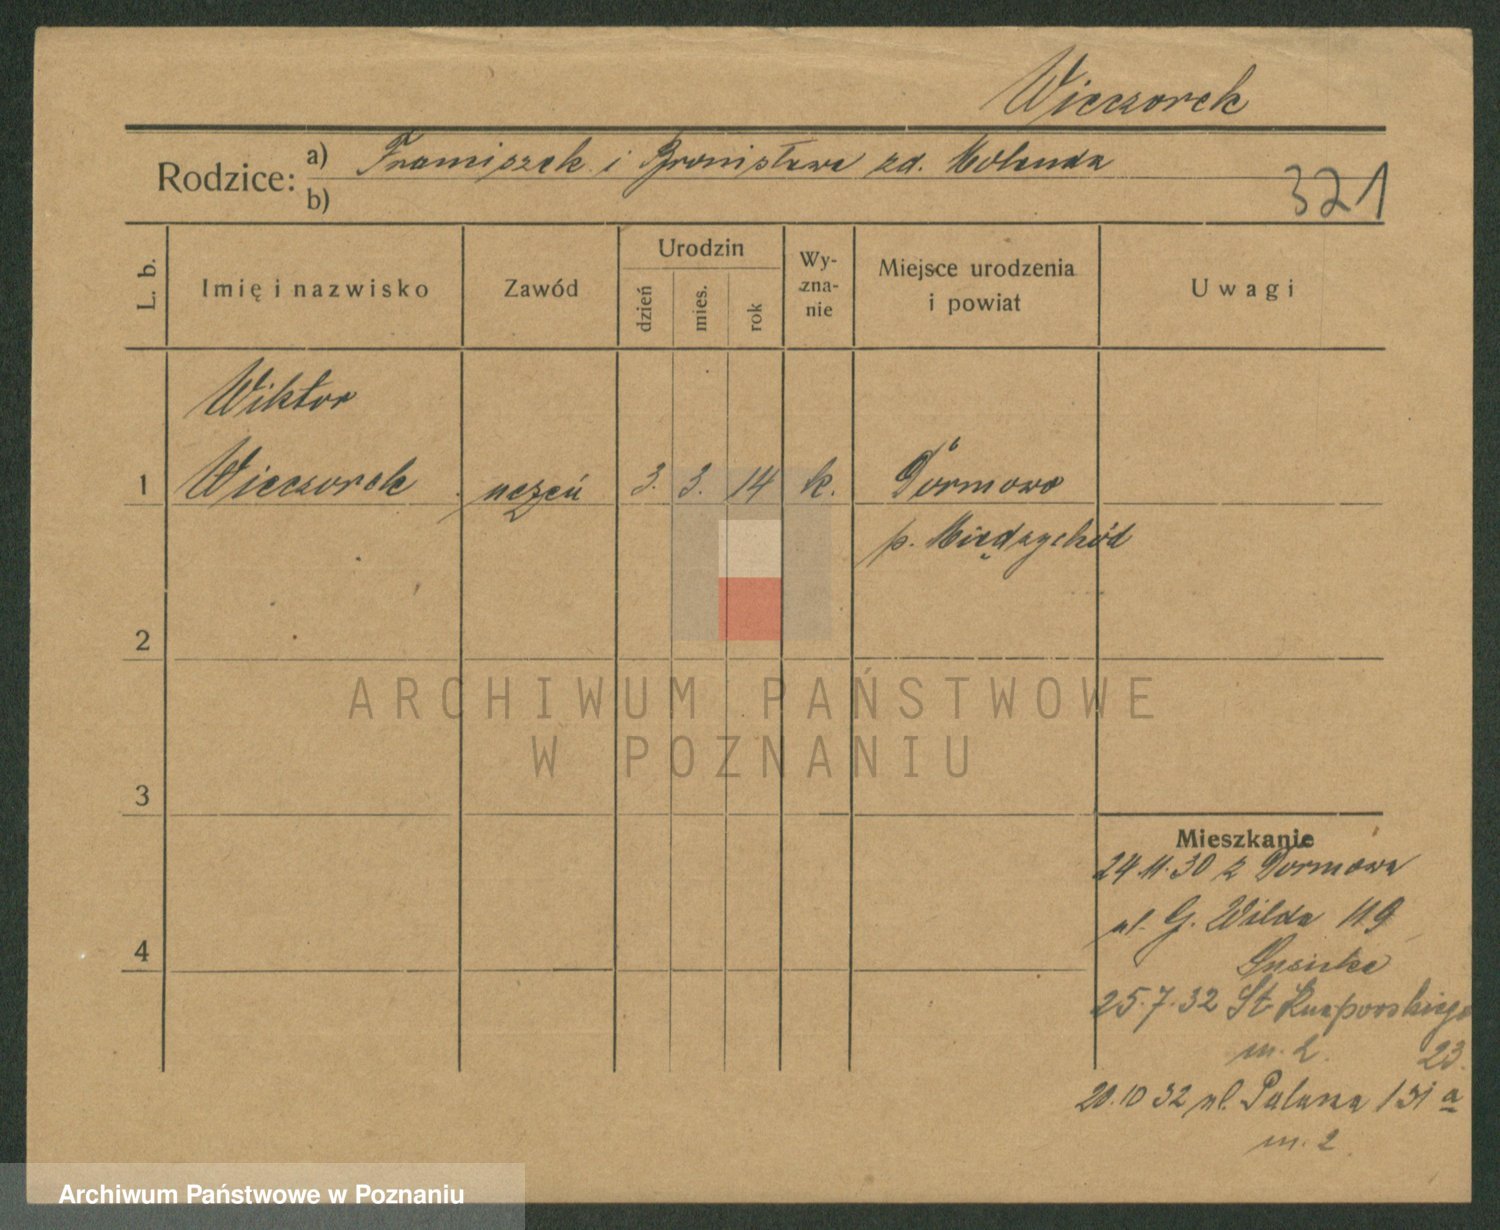 Wieczorek
Rodzice: a) Franciszek i Bronisława zd. Molenda
b)
321
L. b.
Imię i nazwisko
Zawód
Urodzin
dzień
mies.
rok
Wy-
zna-
nie
Miejsce urodzenia
i powiat
Uwagi
Wiktor
1 Wieczorek uczeń 3. 3. 14 k. Dormowo
p. Międzychód
2
3
4
Mieszkanie
24.11.30 z Dormowa
ul. G. Wilda 119
25.7.32 St.
m. 2. 23.
20.10 32 ul. Polna 131 a
m. 2
ARCHIWUM PAŃSTWOWE
W POZNANIU
Archiwum Państwowe w Poznaniu